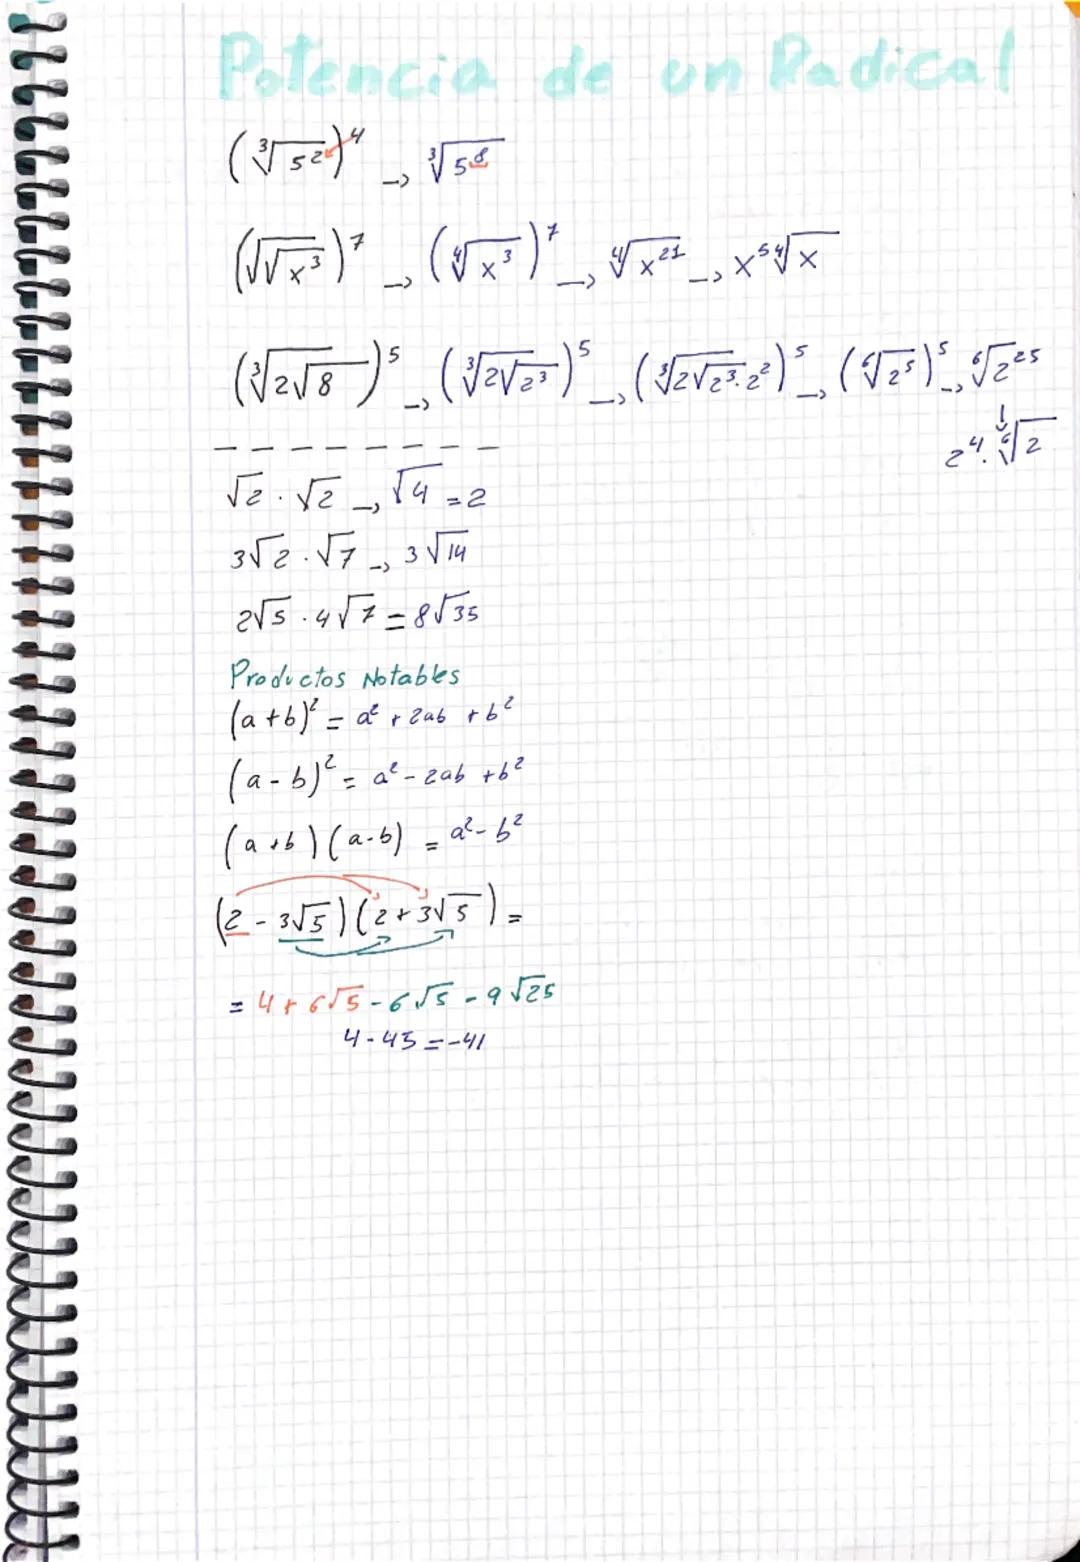 Potencia de un Radical
(∛5²)⁴ → ∛5⁸
(√√x³)⁷ → (∜x³)⁷ → ∜x²¹ → x⁵ ∜x
(∛2√8)⁵ → (∛2√2³)⁵ → (∛2√2³·2²)⁵ → (⁶√2⁵)⁵ → ⁶√2²⁵
↓
2⁴·⁶√2
√2 · √2 → √4 = 2
3√2 · √7 → 3√14
2√5 · 4√7 = 8√35
Productos Notables
(a+b)² = a² + 2ab + b²
(a-b)² = a² - 2ab + b²
(a+b)(a-b) = a² - b²
(2 - 3√5)(2 + 3√5) =
= 4 + 6√5 - 6√5 - 9√25
4 - 45 = -41